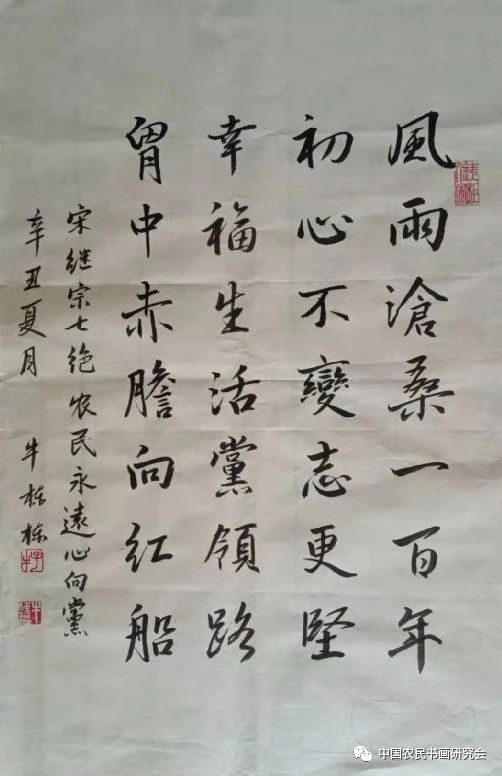 風雨滄桑一百年
初心不變志更堅
幸福生活黨領路
胷中赤膽向红船
宋继宗七绝 农民永遠心向黨
辛丑夏月 牛栋樑
中国农民书画研究会